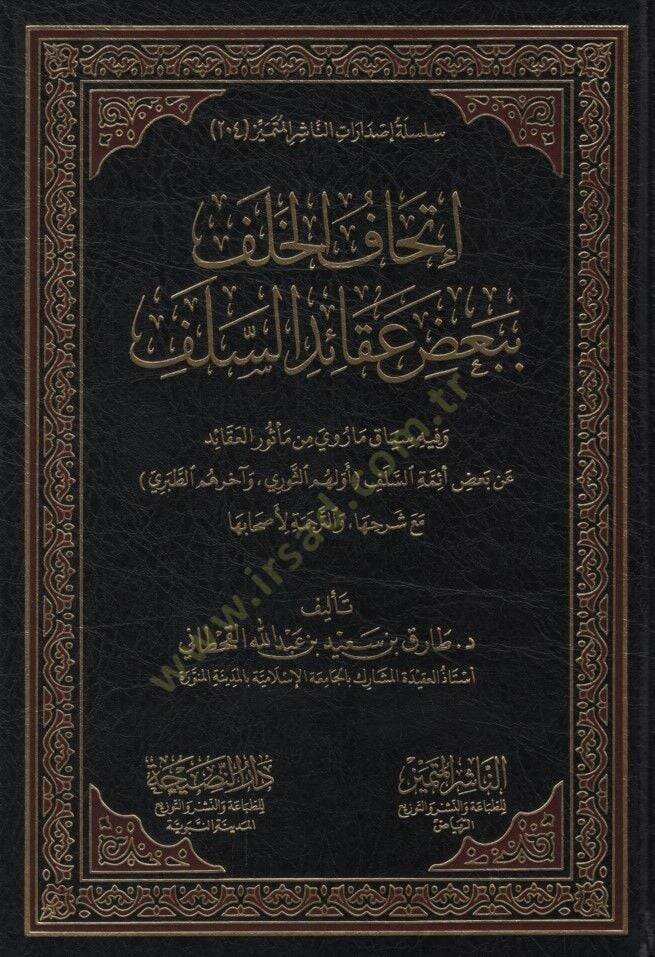 سلسلة إصدارات الناشر المتميز (٢٠٤)
إتحاف الخلف
ببعض عقائد السلف
وفيه سياق ما روي من مأثور العقائد
عن بعض أئمة السلف (أولهم الثوري، وآخرهم الطبري)
مع شرحها، والترجمة لأصحابها
تأليف
د. طارق بن سعيد بن عبد الله القحطاني
أستاذ العقيدة المشارك بالجامعة الإسلامية بالمدينة المنورة
الناشر المتميز
للطباعة والنشر والتوزيع
الرياض
دار النصيحة
للطباعة والنشر والتوزيع
المدينة النبوية
www.irsad.com.tr